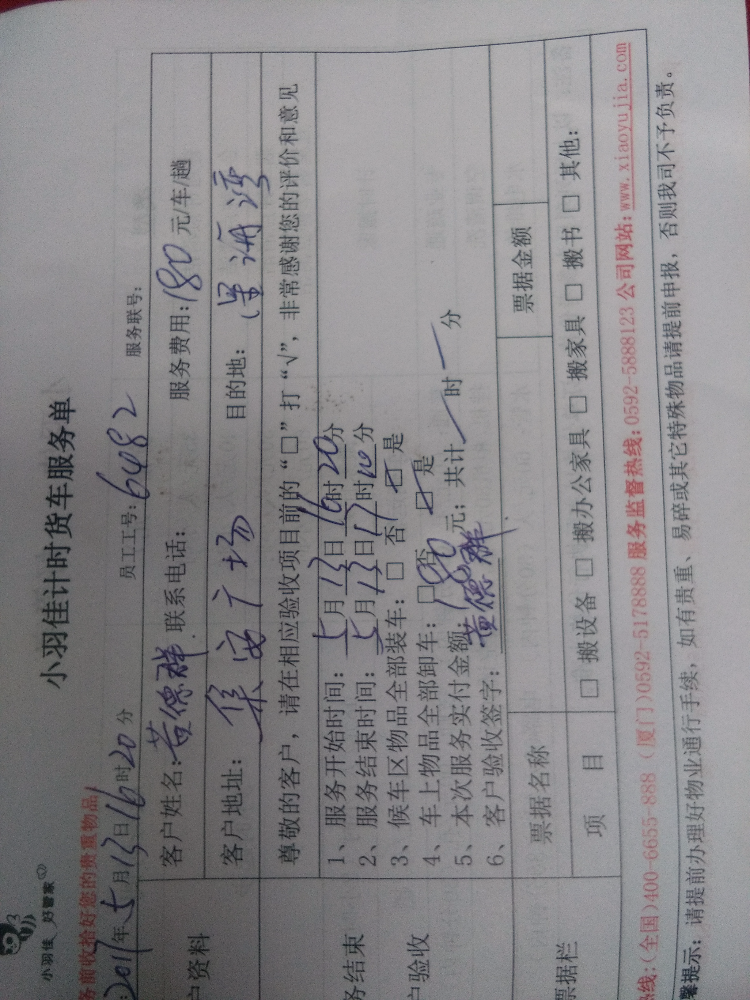 小羽佳 好管家
小羽佳计时货车服务单
务前收拾好您的贵重物品
2017年5月13日16时20分 员工工号:6482 服务联号:
户资料 客户姓名:黄德群 联系电话: 服务费用:180元/车/趟
客户地址: 集安广场 目的地:
尊敬的客户,请在相应验收项目前的“□”打“√”,非常感谢您的评价和意见
务结束
户验收
1、服务开始时间:5月13日16时20分
2、服务结束时间:5月13日17时10分
3、候车区物品全部装车:□ 否 ☑ 是
4、车上物品全部卸车:□ 否 ☑ 是
5、本次服务实付金额:180元;共计/时/分
6、客户验收签字:黄德群
票据栏 票据名称 票据金额
项 目 □ 搬设备 □ 搬办公家具 □ 搬家具 □ 搬书 □ 其他:
热线:(全国)400-6655-888 (厦门)0592-5178888 服务监督热线:0592-5888123 公司网站:www.xiaoyujia.com
馨提示:请提前办理好物业通行手续,如有贵重、易碎或其它特殊物品请提前申报,否则我司不予负责。